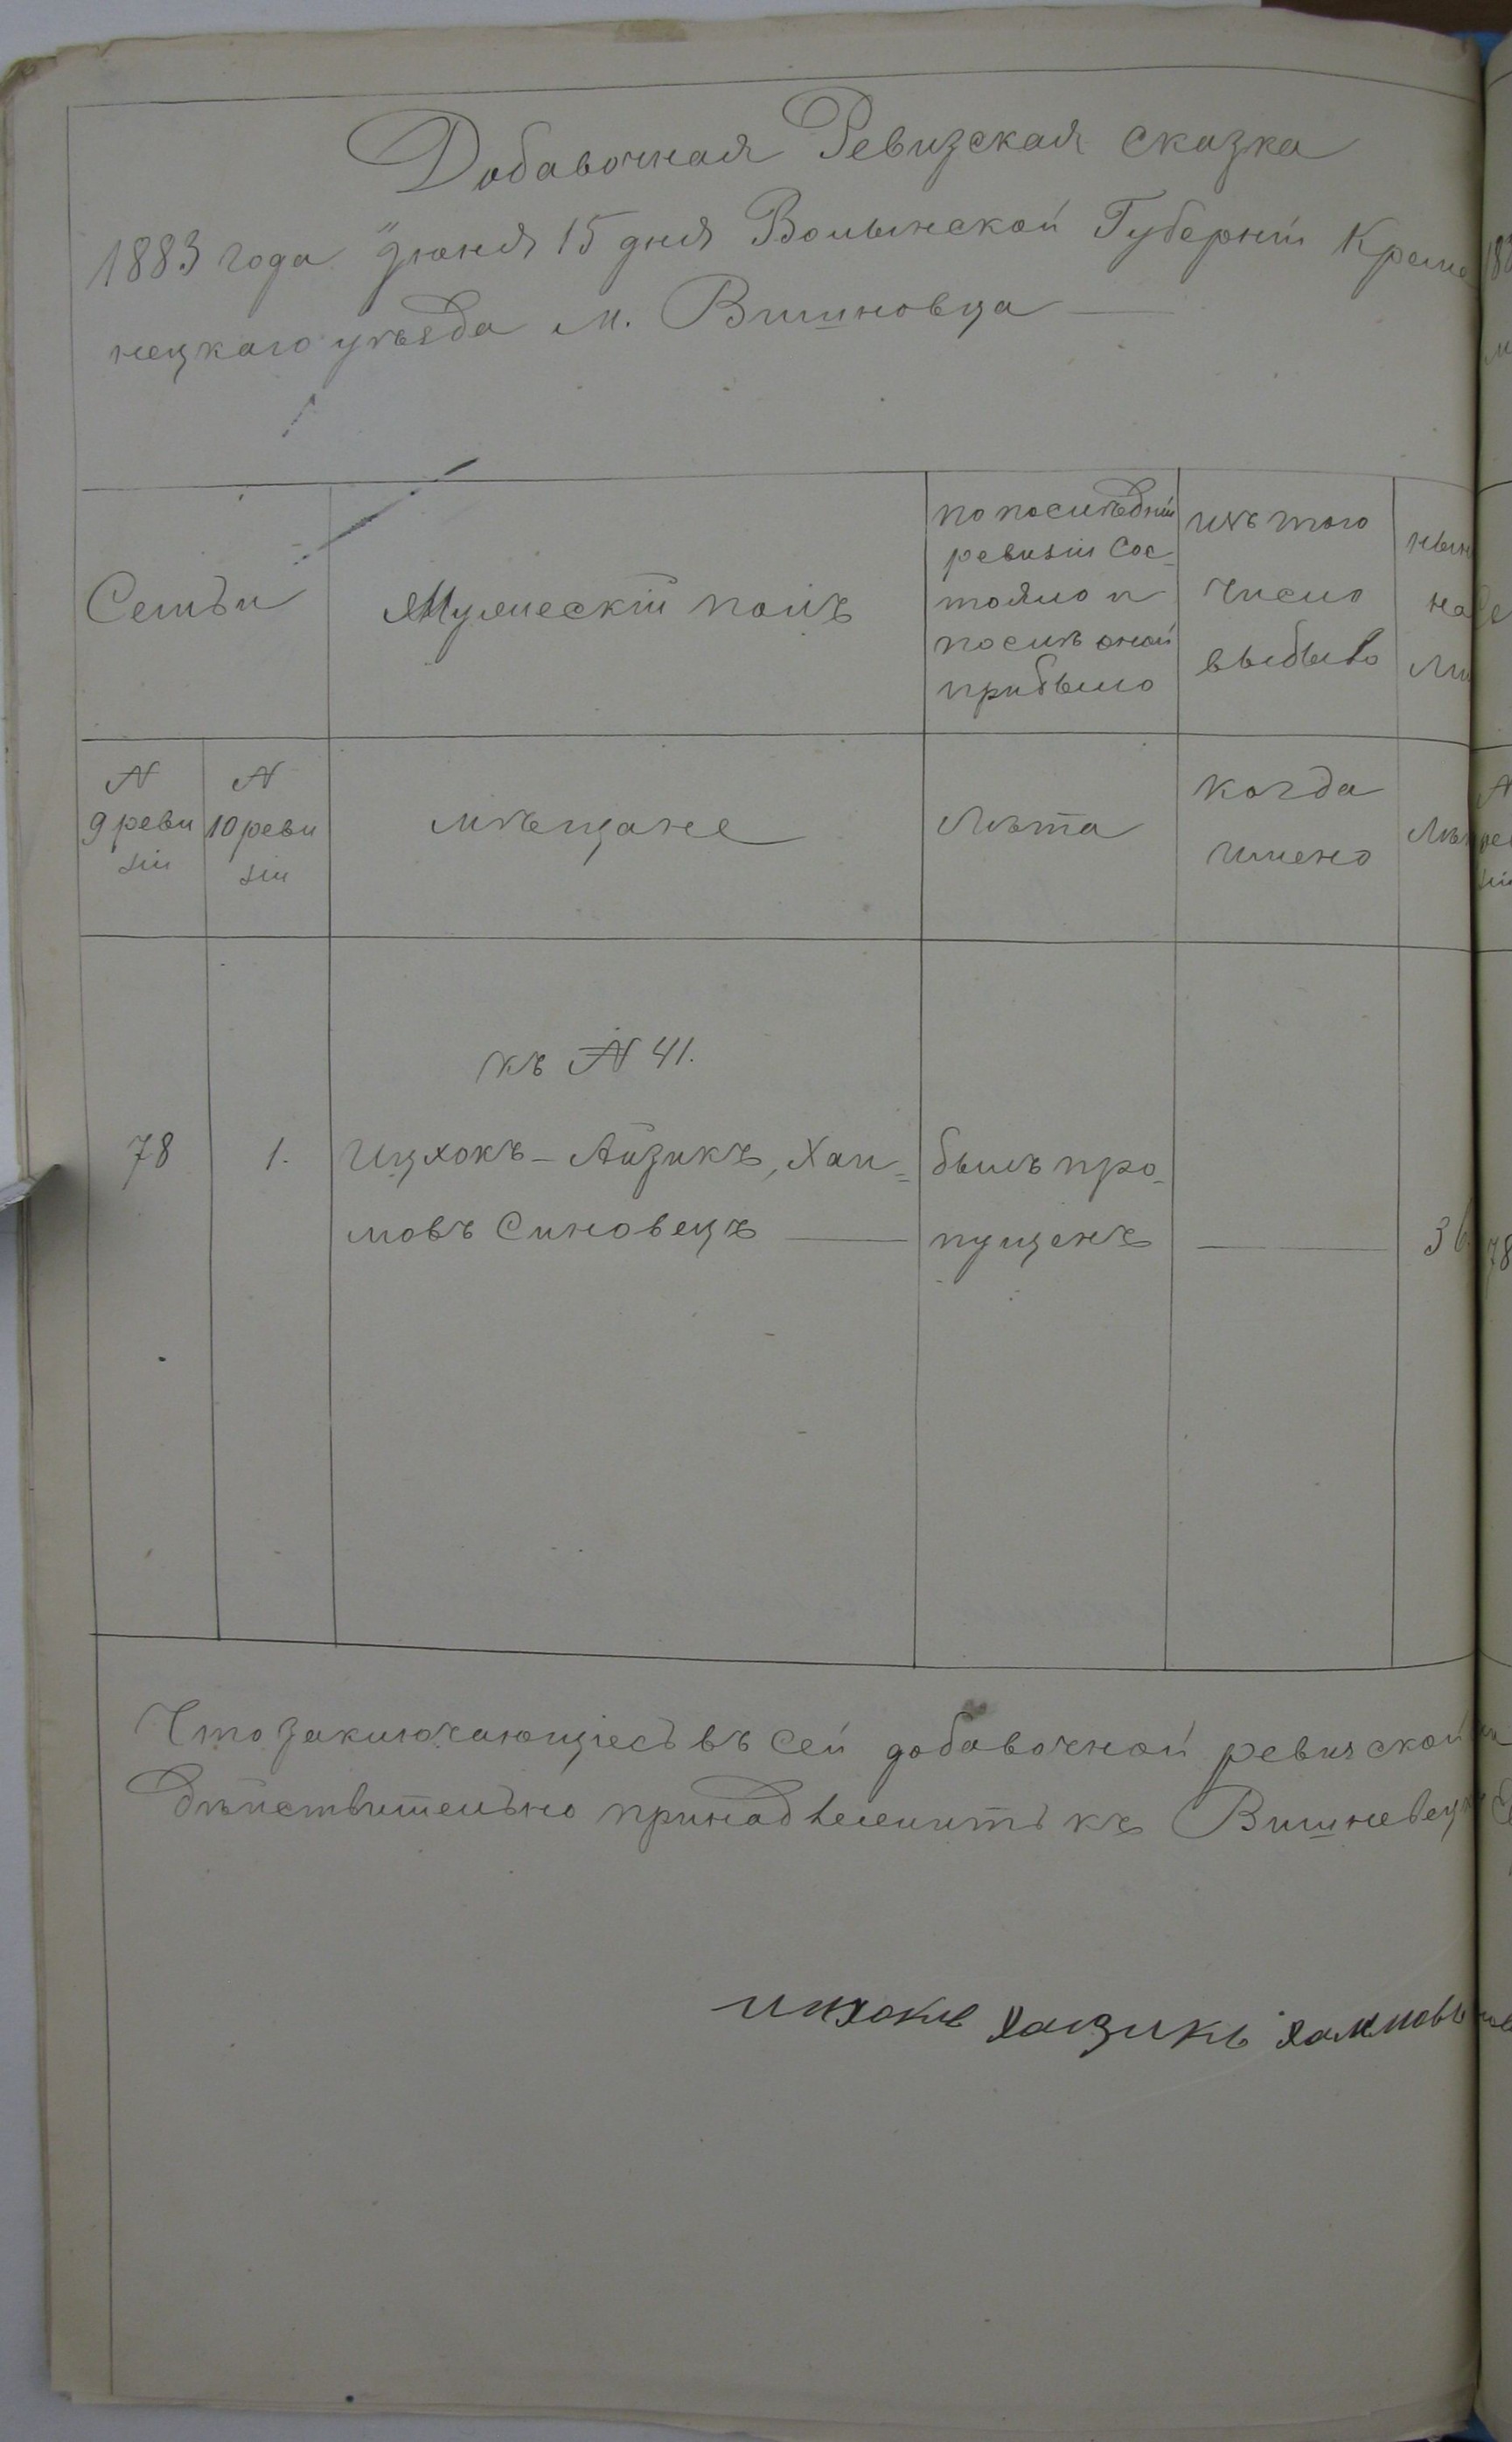 Добавочная Ревизская сказка
1883 года Іюня 15 дня Волынской Губерніи Креме
нецкаго уѣзда м. Вишновца
Семьи
Мужескій полъ
по послѣдній
ревизіи Сос-
тояло и
послѣ оной
прибыло
изъ того
число
выбыло
нын
на
ли
N
9 реви
зіи
N
10 реви
зіи
мѣщане
Лѣта
когда
имено
Лѣт
къ N 41.
78
1.
Ицхокъ-Айзикъ, Хаи=
мовъ Синовецъ
былъ про-
пущенъ
36
Что заключающіесь въ сей добавочной ревизской
дѣйствительно принадлежитъ къ Вишневец
ицхокъ хаизикъ хаимовъ